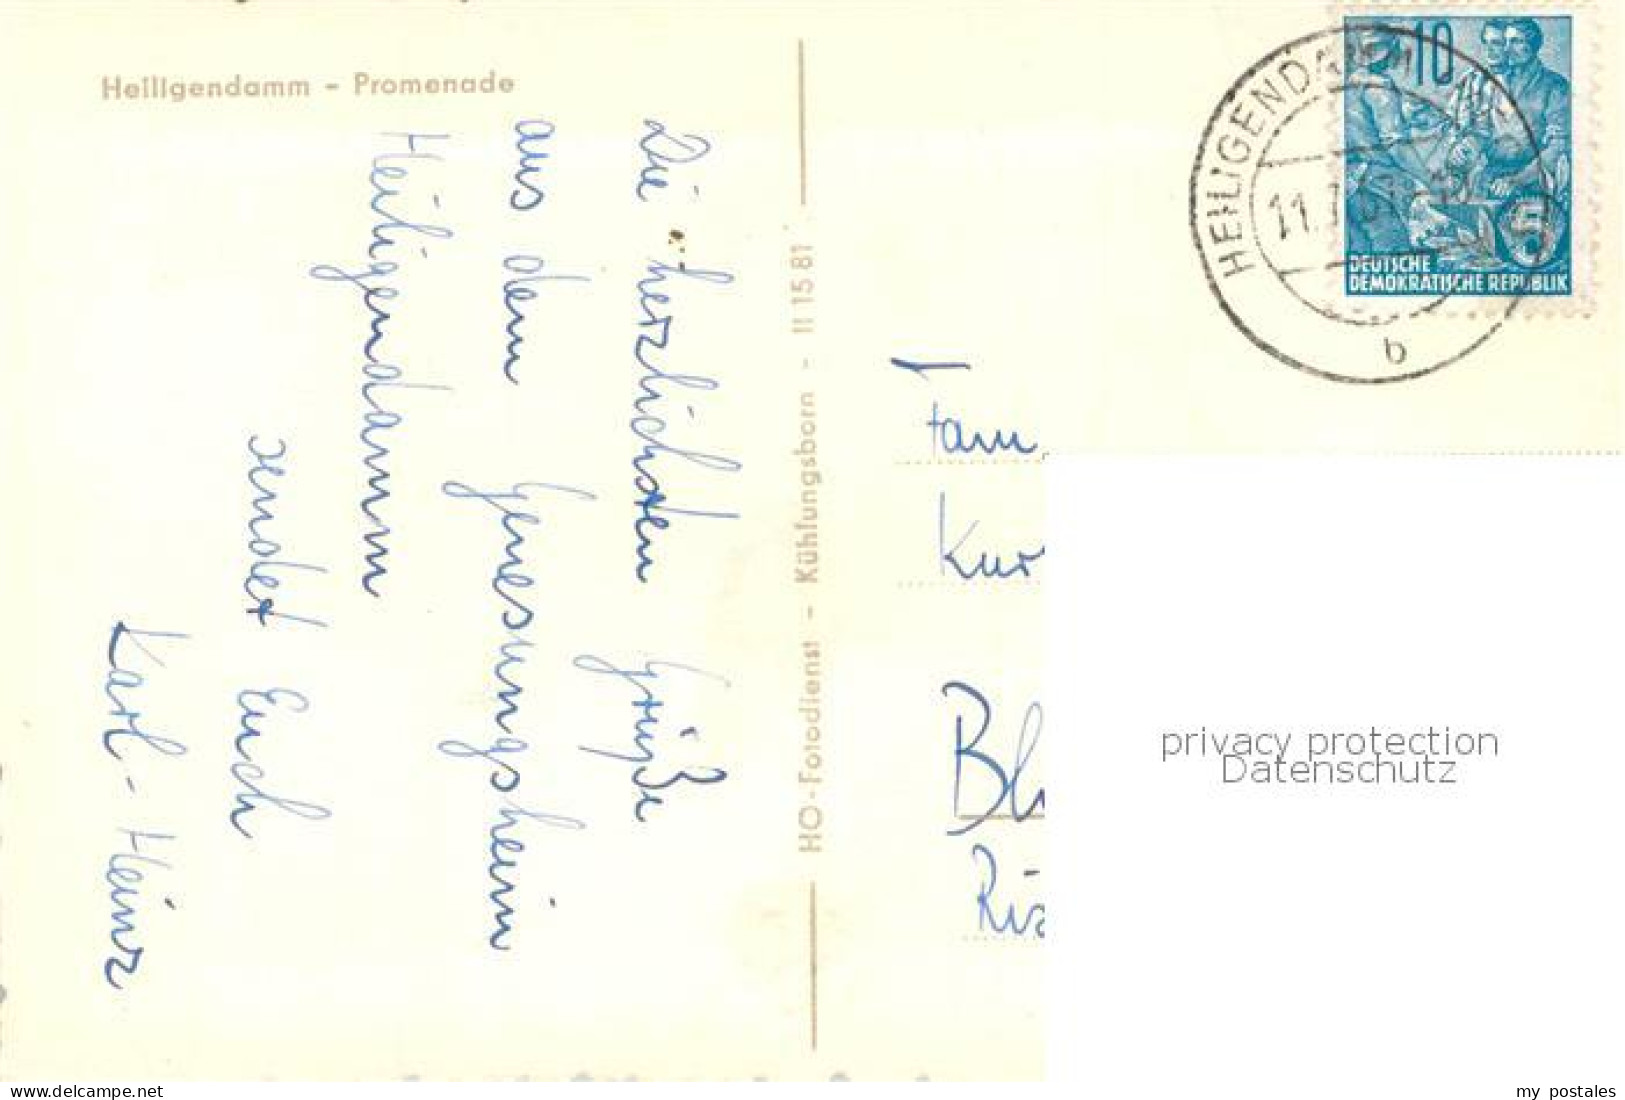 Heiligendamm - Promenade
Die herzlichsten Grüße
aus dem Genesungsheim
Heiligendamm
sendet Euch
Karl-Heinz
HO-Fotodienst - Kühlungsborn - II 15 81
HEILIGENDAMM
11.
b
10
5
DEUTSCHE
DEMOKRATISCHE REPUBLIK
Fam
Kur
Bl
privacy protection
Datenschutz
www.ansichtskartenversand.com
my postales